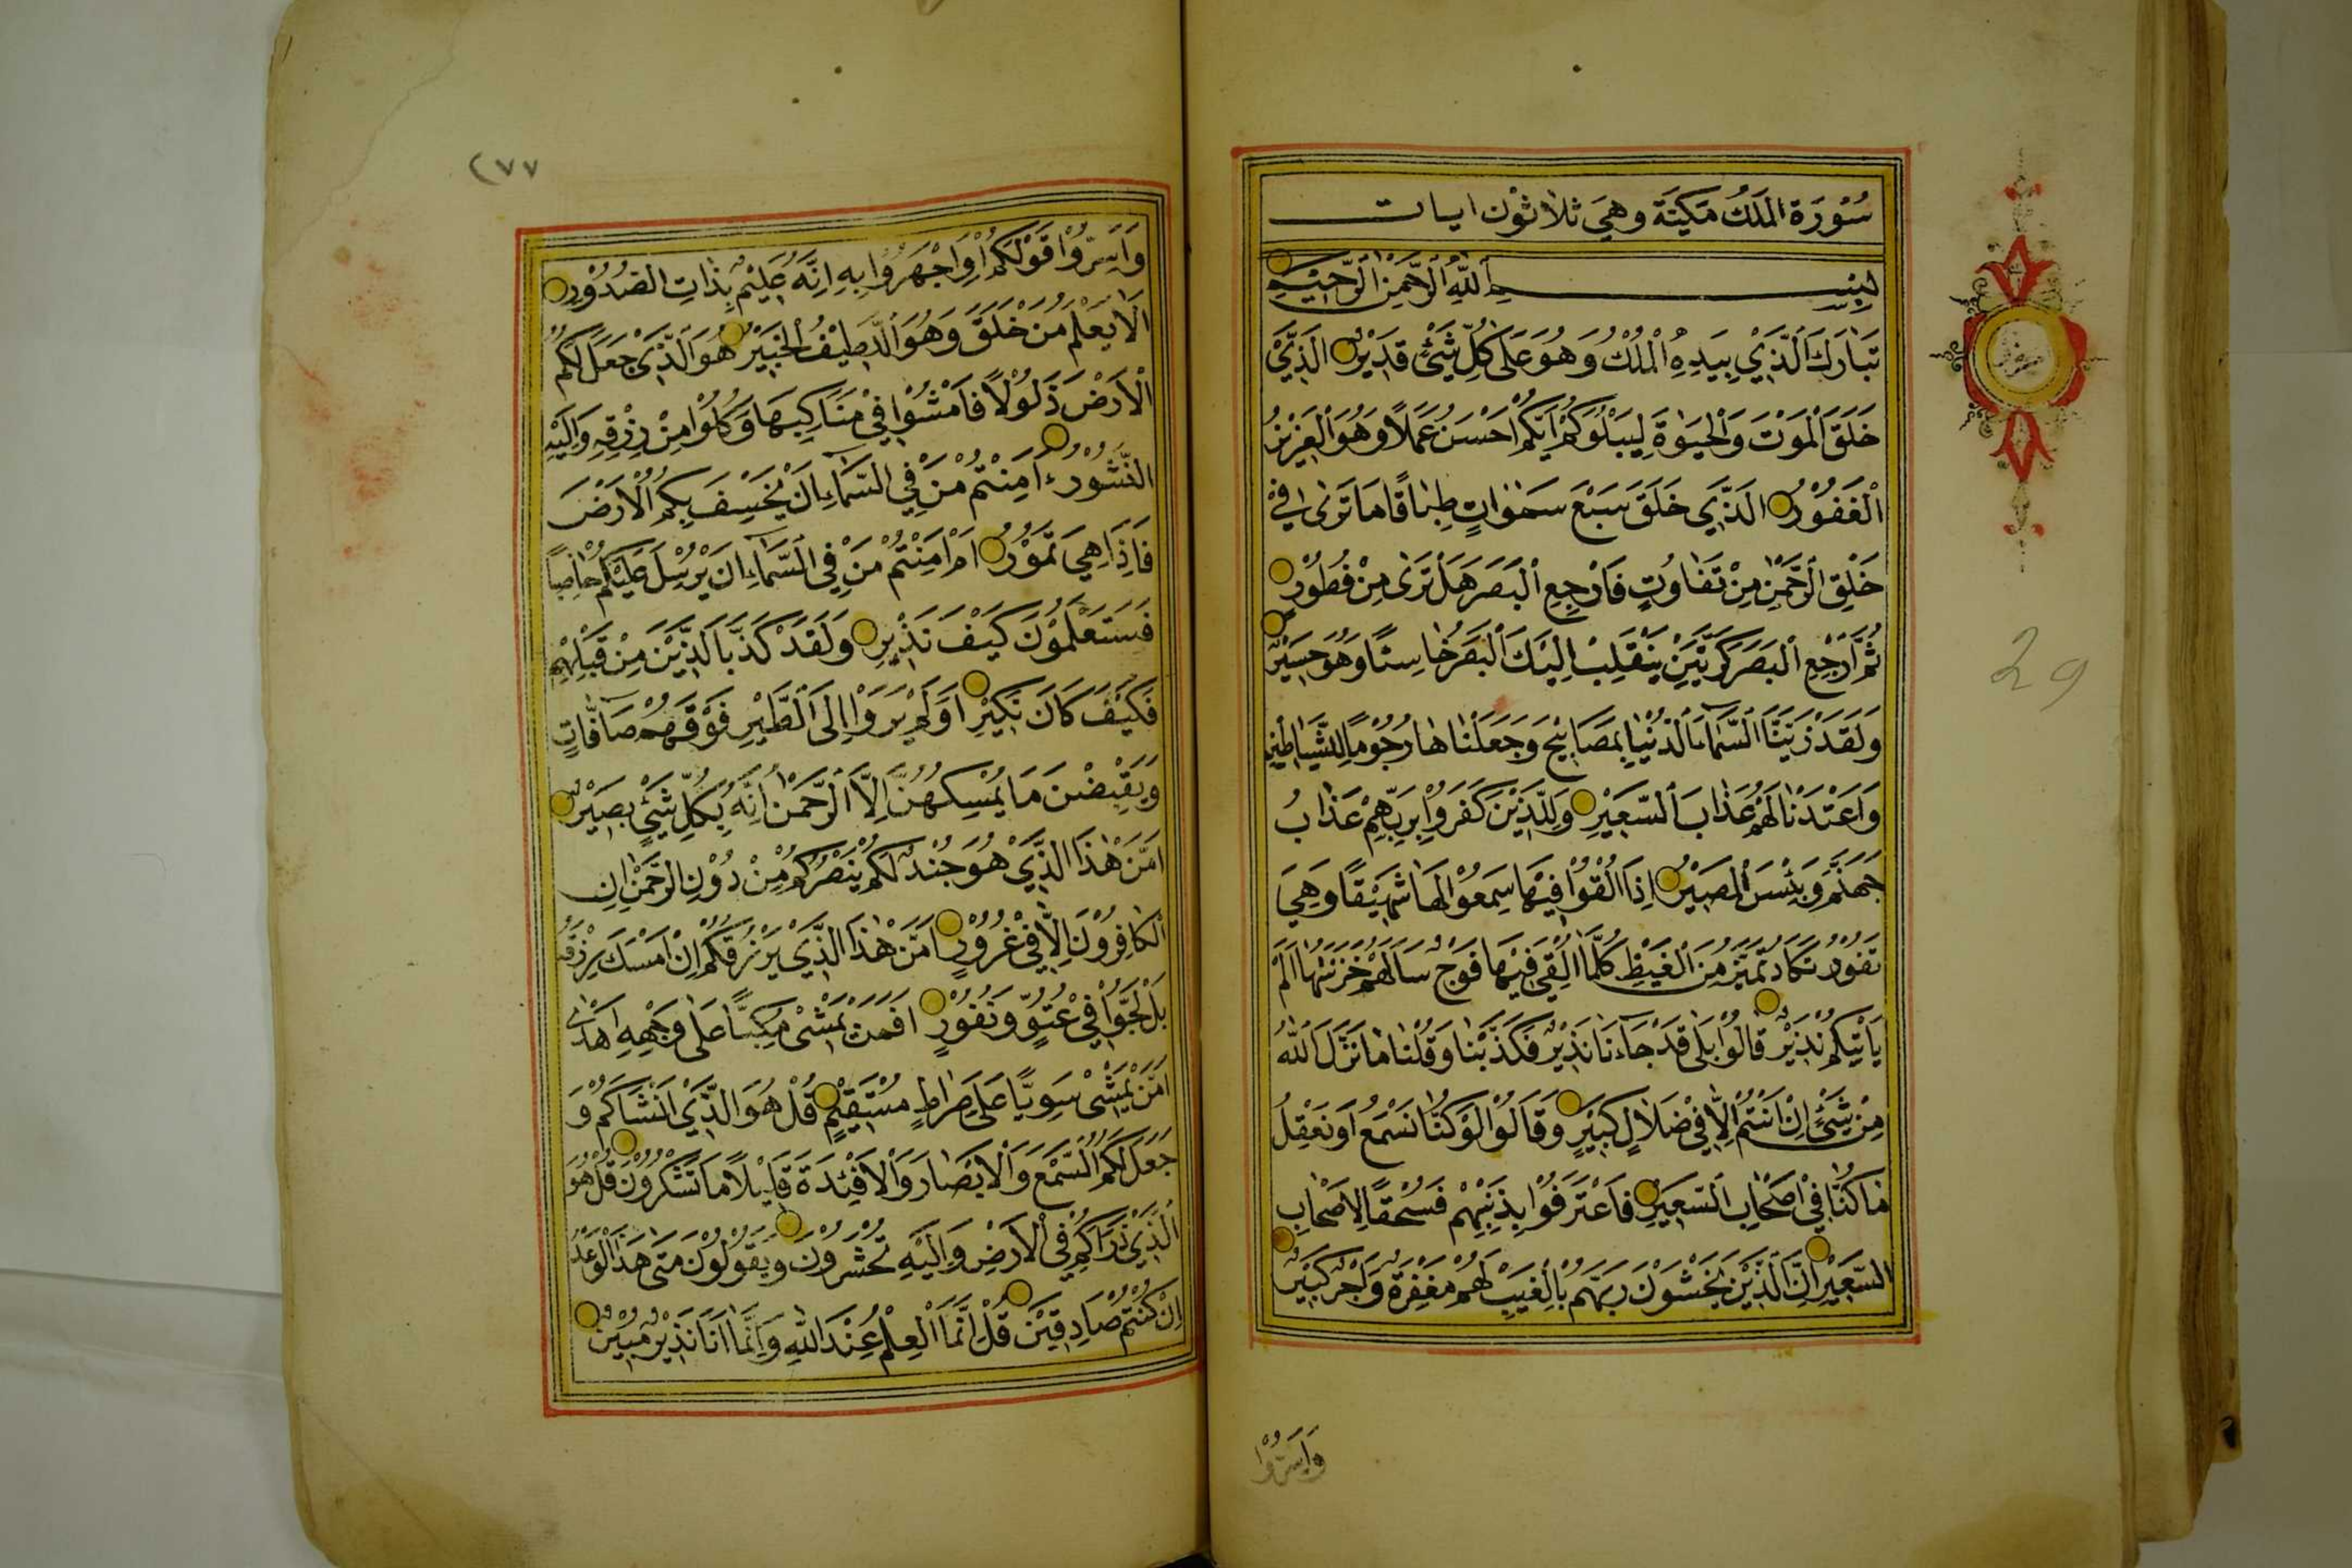 سُوْرَة الْمَلَكُ مَكِيَّة وَهِيَ ثَلَاثُوْن ايات
بِسْمِ اللّٰهِ الرَّحْمٰنِ الرَّحِيْمِ
تَبَارَكَ الَّذِيْ بِيَدِهِ الْمُلْكُ وَهُوَ عَلٰى كُلِّ شَيْءٍ قَدِيْرٌ الَّذِيْ
خَلَقَ الْمَوْتَ وَالْحَيٰوةَ لِيَبْلُوَكُمْ اَيُّكُمْ اَحْسَنُ عَمَلًا وَهُوَ الْعَزِيْزُ
الْغَفُوْرُ الَّذِيْ خَلَقَ سَبْعَ سَمٰوَاتٍ طِبَاقًا مَا تَرٰى فِيْ
خَلْقِ الرَّحْمٰنِ مِنْ تَفَاوُتٍ فَارْجِعِ الْبَصَرَ هَلْ تَرٰى مِنْ فُطُوْرٍ
ثُمَّ ارْجِعِ الْبَصَرَ كَرَّتَيْنِ يَنْقَلِبْ اِلَيْكَ الْبَصَرُ خَاسِئًا وَهُوَ حَسِيْرٌ
وَلَقَدْ زَيَّنَّا السَّمَاءَ الدُّنْيَا بِمَصَابِيْحَ وَجَعَلْنَاهَا رُجُوْمًا لِلشَّيَاطِيْنِ
وَاَعْتَدْنَا لَهُمْ عَذَابَ السَّعِيْرِ وَلِلَّذِيْنَ كَفَرُوْا بِرَبِّهِمْ عَذَابُ
جَهَنَّمَ وَبِئْسَ الْمَصِيْرُ اِذَا اُلْقُوْا فِيْهَا سَمِعُوْا لَهَا شَهِيْقًا وَهِيَ
تَفُوْرُ تَكَادُ تَمَيَّزُ مِنَ الْغَيْظِ كُلَّمَا اُلْقِيَ فِيْهَا فَوْجٌ سَاَلَهُمْ خَزَنَتُهَا اَلَمْ
يَاْتِيْكُمْ نَذِيْرٌ قَالُوْا بَلٰى قَدْ جَاءَنَا نَذِيْرٌ فَكَذَّبْنَا وَقُلْنَا مَا نَزَّلَ اللّٰهُ
مِنْ شَيْءٍ اِنْ اَنْتُمْ اِلَّا فِيْ ضَلَالٍ كَبِيْرٍ وَقَالُوْا لَوْ كُنَّا نَسْمَعُ اَوْ نَعْقِلُ
مَا كُنَّا فِيْ اَصْحَابِ السَّعِيْرِ فَاعْتَرَفُوْا بِذَنْبِهِمْ فَسُحْقًا لِاَصْحَابِ
السَّعِيْرِ اِنَّ الَّذِيْنَ يَخْشَوْنَ رَبَّهُمْ بِالْغَيْبِ لَهُمْ مَغْفِرَةٌ وَاَجْرٌ كَبِيْرٌ
وَاَسِرُّوْا
29
٢٧٧
وَاَسِرُّوْا قَوْلَكُمْ اَوِ اجْهَرُوْا بِهٖ اِنَّهُ عَلِيْمٌ بِذَاتِ الصُّدُوْرِ
اَلَا يَعْلَمُ مَنْ خَلَقَ وَهُوَ اللَّطِيْفُ الْخَبِيْرُ هُوَ الَّذِيْ جَعَلَ لَكُمُ
الْاَرْضَ ذَلُوْلًا فَامْشُوْا فِيْ مَنَاكِبِهَا وَكُلُوْا مِنْ رِزْقِهٖ وَاِلَيْهِ
النُّشُوْرُ ءَاَمِنْتُمْ مَنْ فِي السَّمَاءِ اَنْ يَخْسِفَ بِكُمُ الْاَرْضَ
فَاِذَا هِيَ تَمُوْرُ اَمْ اَمِنْتُمْ مَنْ فِي السَّمَاءِ اَنْ يُرْسِلَ عَلَيْكُمْ حَاصِبًا
فَسَتَعْلَمُوْنَ كَيْفَ نَذِيْرِ وَلَقَدْ كَذَّبَ الَّذِيْنَ مِنْ قَبْلِهِمْ
فَكَيْفَ كَانَ نَكِيْرِ اَوَلَمْ يَرَوْا اِلَى الطَّيْرِ فَوْقَهُمْ صَافَّاتٍ
وَيَقْبِضْنَ مَا يُمْسِكُهُنَّ اِلَّا الرَّحْمٰنُ اِنَّهُ بِكُلِّ شَيْءٍ بَصِيْرٌ
اَمَّنْ هٰذَا الَّذِيْ هُوَ جُنْدٌ لَكُمْ يَنْصُرُكُمْ مِنْ دُوْنِ الرَّحْمٰنِ اِنِ
الْكَافِرُوْنَ اِلَّا فِيْ غُرُوْرٍ اَمَّنْ هٰذَا الَّذِيْ يَرْزُقُكُمْ اِنْ اَمْسَكَ رِزْقَهُ
بَلْ لَجُّوْا فِيْ عُتُوٍّ وَنُفُوْرٍ اَفَمَنْ يَمْشِيْ مُكِبًّا عَلٰى وَجْهِهٖ اَهْدٰى
اَمَّنْ يَمْشِيْ سَوِيًّا عَلٰى صِرَاطٍ مُسْتَقِيْمٍ قُلْ هُوَ الَّذِيْ اَنْشَاَكُمْ وَ
جَعَلَ لَكُمُ السَّمْعَ وَالْاَبْصَارَ وَالْاَفْئِدَةَ قَلِيْلًا مَا تَشْكُرُوْنَ قُلْ هُوَ
الَّذِيْ ذَرَاَكُمْ فِي الْاَرْضِ وَاِلَيْهِ تُحْشَرُوْنَ وَيَقُوْلُوْنَ مَتٰى هٰذَا الْوَعْدُ
اِنْ كُنْتُمْ صَادِقِيْنَ قُلْ اِنَّمَا الْعِلْمُ عِنْدَ اللّٰهِ وَاِنَّمَا اَنَا نَذِيْرٌ مُبِيْنٌ